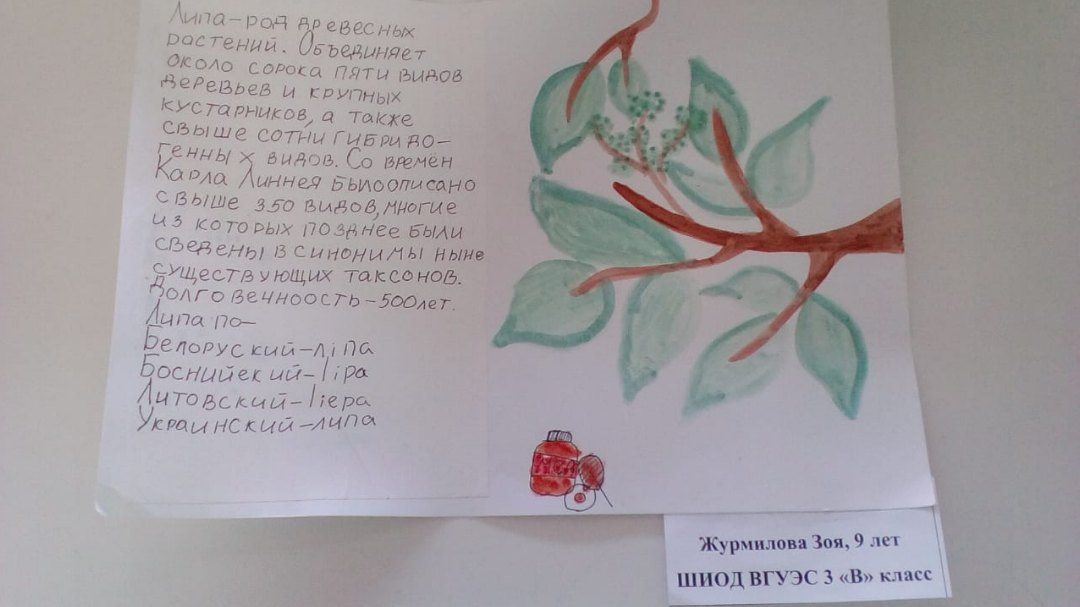 Липа-род древесных
растений. Объединяет
около сорока пяти видов
деревьев и крупных
кустарников, а также
свыше сотни гибридо-
генных видов. Со времён
Карла Линнея былоописано
свыше 350 видов, многие
из которых позднее были
сведены в синонимы ныне
существующих таксонов.
Долговечноость-500лет.
Липа по-
Белоруский-ліпа
Боснийекий-lipa
Литовский-liepa
Украинский-липа
Журмилова Зоя, 9 лет
ШИОД ВГУЭС 3 «В» класс